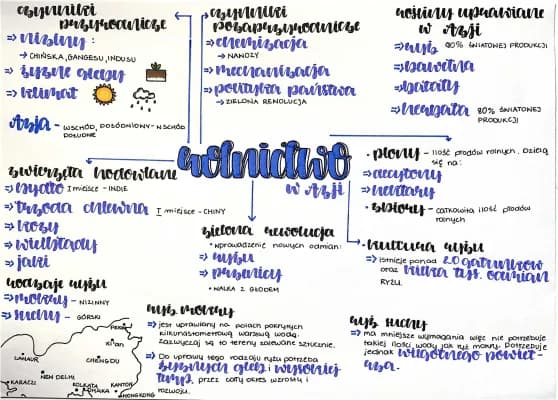 czynniki
przyrodnicze
⇒ niziny:
→ CHIŃSKA, GANGESU, INDUSU
⇒ żyzne gleby
⇒ klimat
Azja - WSCHÓD, POŁUDNIOWY-WSCHÓD
POŁUDNIE
czynniki
pozaprzyrodnicze
⇒ chemizacja
→ NAWOZY
⇒ mechanizacja
⇒ polityka państwa
→ ZIELONA REWOLUCJA
rośliny uprawiane
w Azji
⇒ ryż 90% ŚWIATOWEJ PRODUKCJI
⇒ bawełna
⇒ bataty
⇒ herbata 80% ŚWIATOWEJ
PRODUKCJI
rolnictwo
w Azji
zwierzęta hodowlane
⇒ bydło I miejsce - INDIE
⇒ trzoda chlewna I miejsce - CHINY
⇒ kozy
⇒ wielbłądy
⇒ jaki
rodzaje ryżu
⇒ mokry - NIZINNY
⇒ suchy - GÓRSKI
zielona rewolucja
• wprowadzenie nowych odmian:
⇒ ryżu
⇒ pszenicy
• WALKA Z GŁODEM
• plony - ilość płodów rolnych. Dzielą
się na:
⇒ decytony
⇒ hektary
• zbiory - całkowita ilość płodów
rolnych
• kultura ryżu
⇒ istnieje ponad 20 gatunków
oraz kilka tyś. odmian
RYŻU.
ryż mokry
⇒ jest uprawiany na polach pokrytych
kilkunastometrową warstwą wody.
Zazwyczaj są to tereny zalewane sztucznie.
⇒ Do uprawy tego rodzaju ryżu potrzeba
żyznych gleb i wysokiej
temp. przez cały okres wzrostu i
rozwoju.
ryż suchy
⇒ ma mniejsze wymagania więc nie potrzebuje
takiej ilości wody jak ryż mokry. Potrzebuje
jednak wilgotnego powiet-
rza.
PEKIN
Xi'an
LAHAUR
CHENGDU
NEW DELHI
KARACZI
KOLKATA
DHAKA
KANTON
HONGKONG